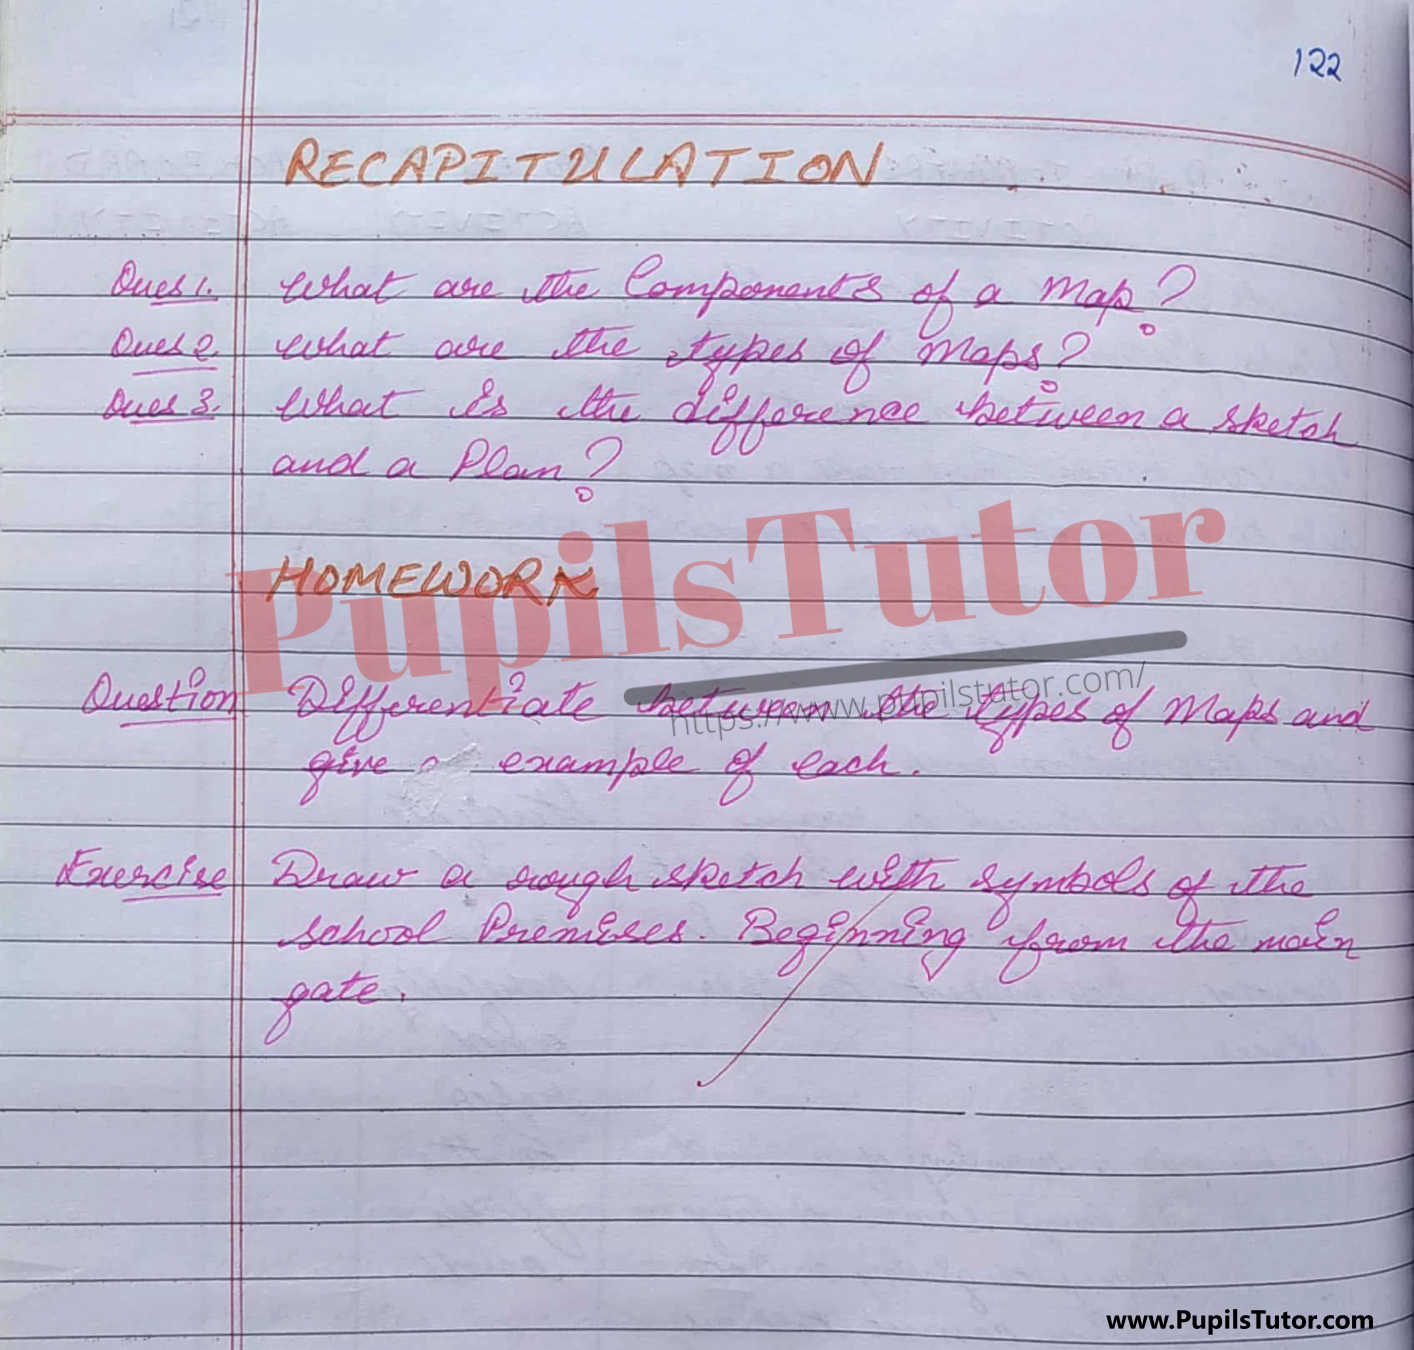 122
RECAPITULATION
Ques 1. What are the Components of a Map?
Ques 2. What are the types of Maps?
Ques 3. What is the difference between a sketch
and a Plan?
PupilsTutor
HOMEWORK
https://www.pupilstutor.com/
Question Differentiate between the types of Maps and
give example of each.
Exercise Draw a rough sketch with symbols of the
school Premises. Beginning from the main
gate.
www.PupilsTutor.com